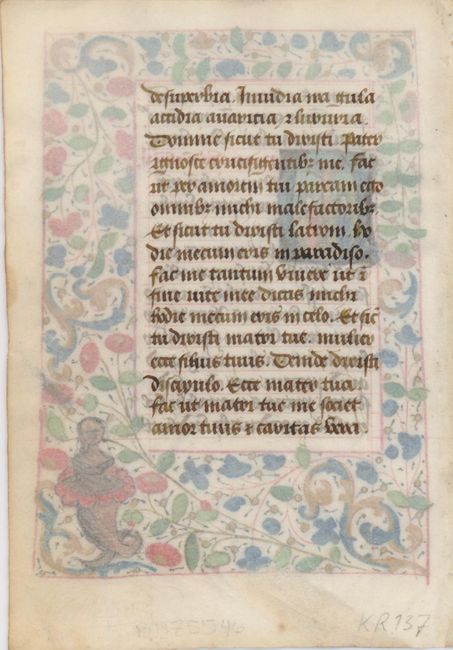 de superbia. Inuidia ira gula
accidia auaricia ⁊ luxuria.
Domine sicut tu dixisti. Pater
ignosce crucifigentibꝰ me. fac
ut per amorem tui parcam ego
omnibꝰ michi malefactoribꝰ.
Et sicut tu dixisti latroni. ho
die mecum eris in paradiso.
fac me tantum viuere ut ī
fine vite mee dicas michi
hodie mecum eris in celo. Et sic̄
tu dixisti matri tue. mulier
ecce filius tuus. Deinde dixisti
discipulo. Ecce mater tua.
fac ut matri tue me societ
amor tuus ⁊ caritas vera.
KR 137